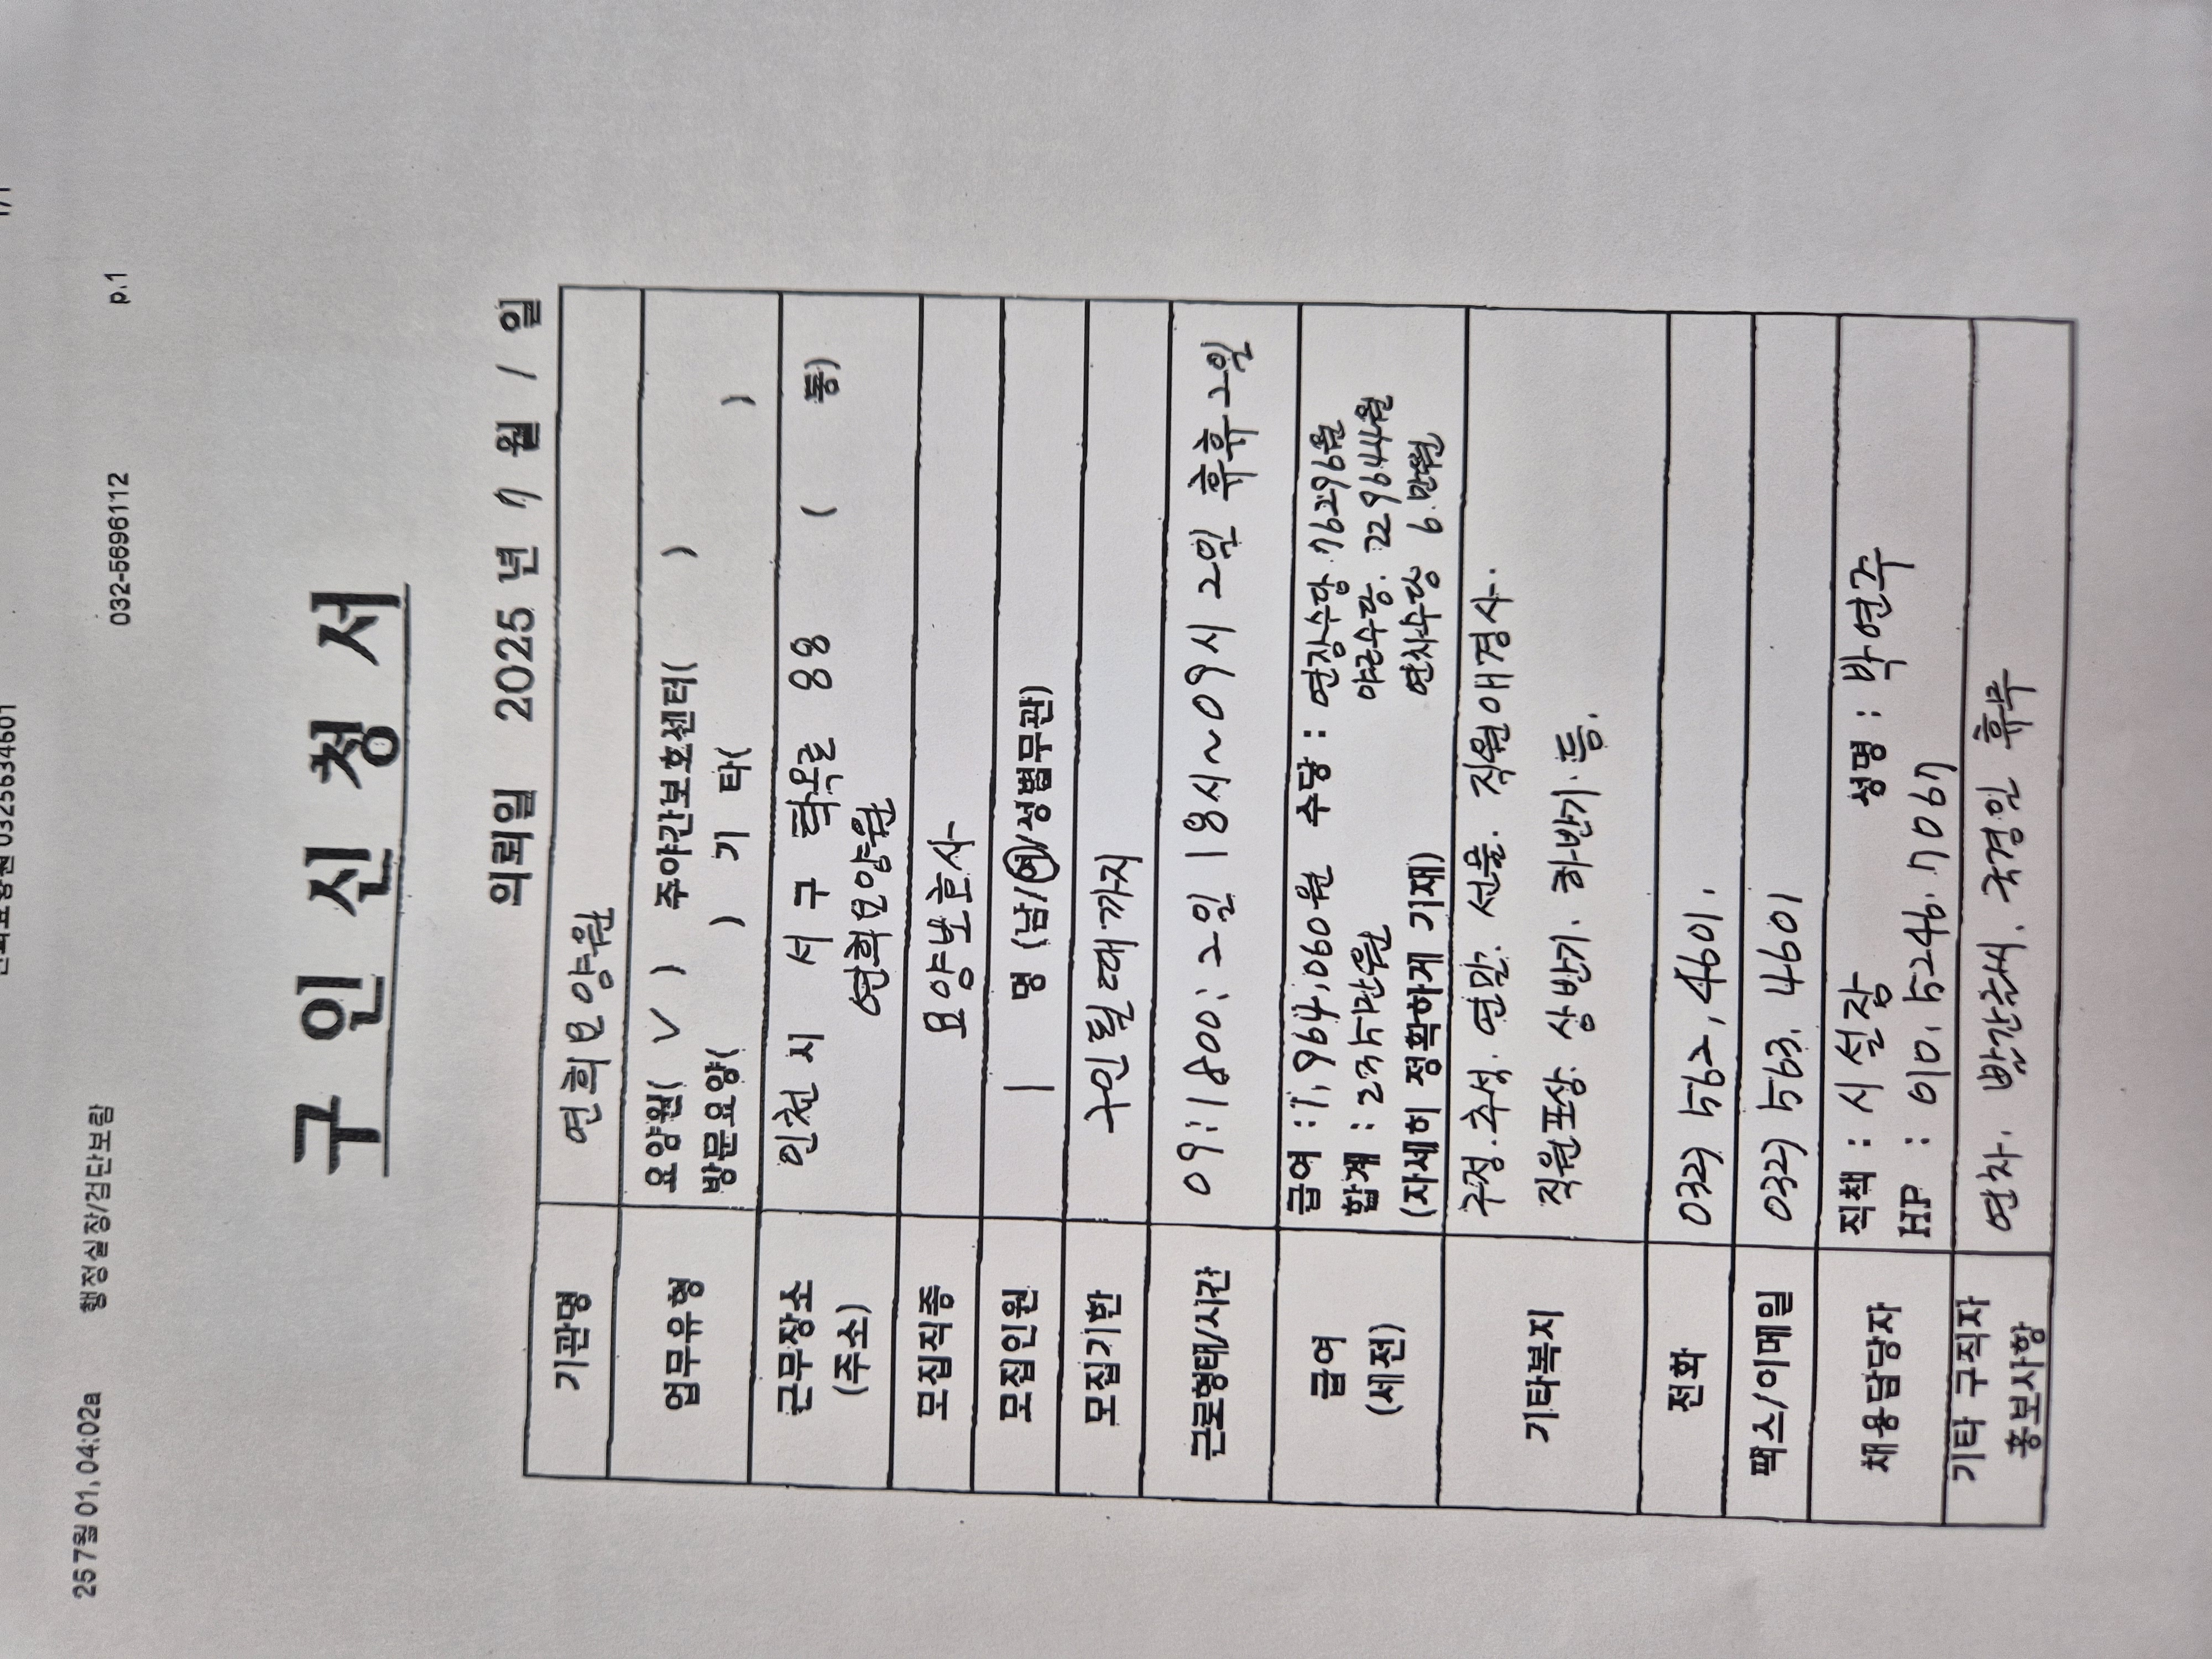 25 7월 01, 04:02a 행정실장/검단보람 032-5696112 p.1
구 인 신 청 서
의뢰일 2025 년 7 월 1 일
기관명 연희요양원
업무유형 요양원( V ) 주야간보호센터( )
방문요양( ) 기 타( )
근무장소 인천시 서구 탁옥로 88 ( 동)
(주소) 연희요양원
모집직종 요양보호사
모집인원 1 명 (남/여/성별무관)
모집기한 구인될때까지
근로형태/시간 09:1800:2일 18시~09시 2일 휴휴2일
급여 급여 : 1,964,060원 수당 : 연장수당 76296원
합계 : 야근수당. 229644원
(세전) 연차수당 6만원
(자세히 정확하게 기재)
기타복지 구정.추석. 연말. 선물. 직원애경사.
직원포상. 상반기. 하반기 등.
전화 032) 562, 4601.
팩스/이메일 032) 563. 4601
채용담당자 직책 : 시설장 성명 : 박연주
HP : 010. 5246. 7067
기타 구직자 연차. 국경일 휴무
홍보사항